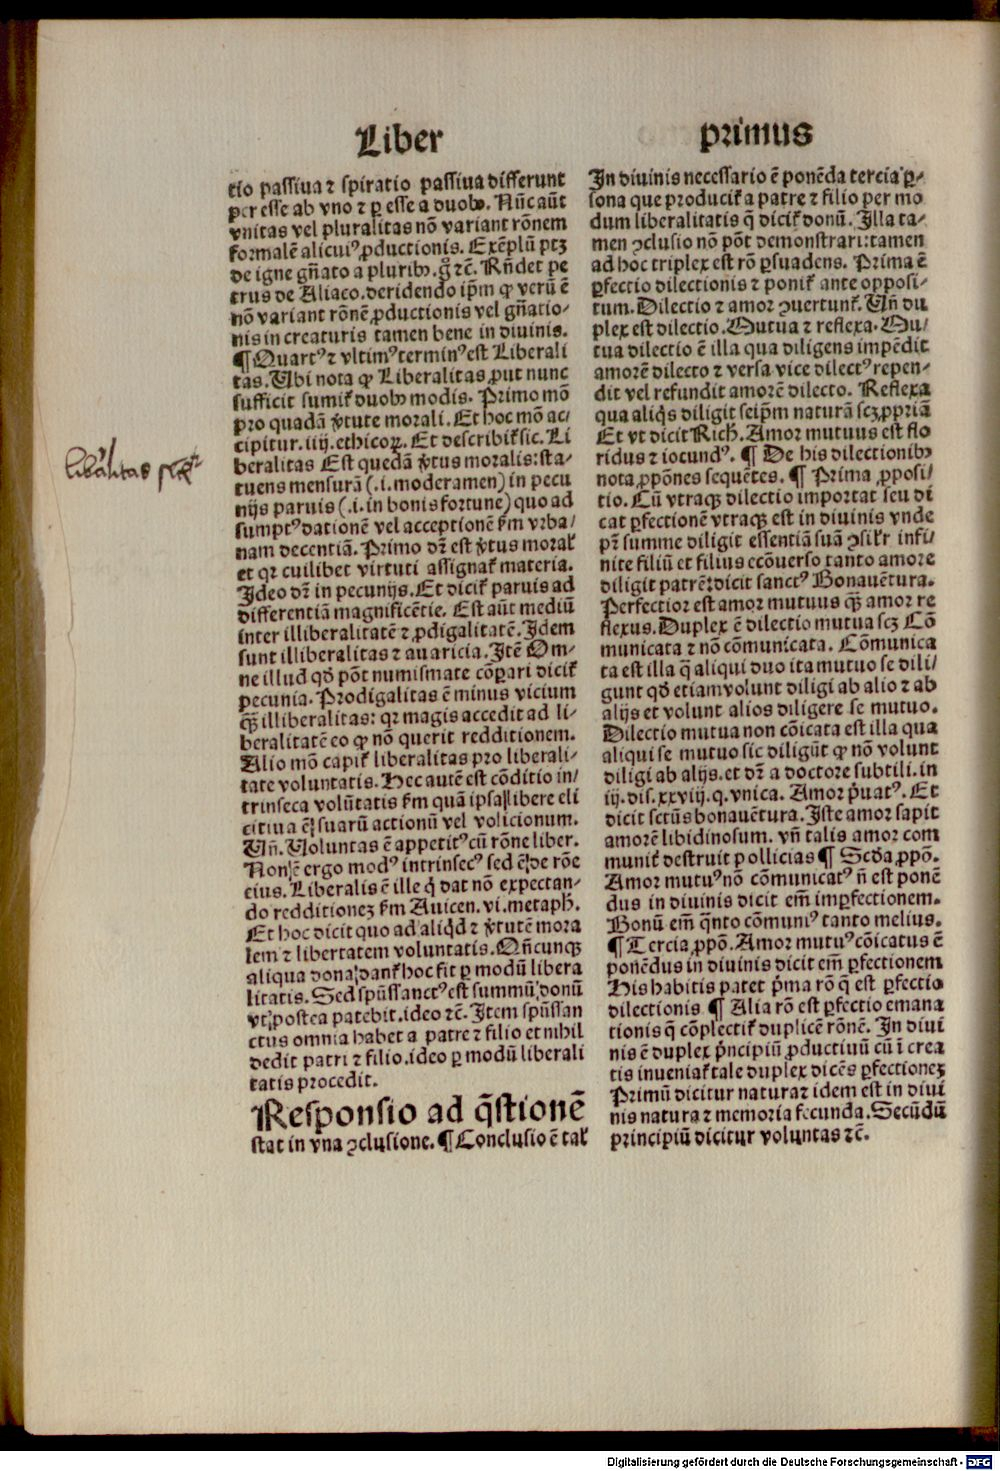 Liber primus
tio passiua ⁊ spiratio passiua differunt
per esse ab vno ⁊ ꝑ esse a duobꝫ. Nūc aūt
vnitas vel pluralitas nō variant rōnem
formalē alicuiꝰ ꝓductionis. Exēplū ptꝫ
de igne gn̄ato a pluribꝫ. gͦ ⁊c̄. Rn̄det pe
trus de Aliaco. deridendo ip̄m ꝙ verū ē
nō variant rōnē ꝓductionis vel gn̄atio-
nis in creaturis tamen bene in diuinis.
¶ Quartꝰ ⁊ vltimꝰ terminꝰ est Liberali
tas. Vbi nota ꝙ Liberalitas ꝓut nunc
sufficit sumiť duobꝫ modis. Primo mō
pro quadā v̓tute morali. Et hoc mō ac/
cipitur .iiij. ethicoꝝ. Et describiť sic. Li
beralitas Est quedā v̓tus moralis: sta-
tuens mensurā (.i. moderamen) in pecu
nijs paruis (.i. in bonis fortune) quo ad
sumptꝰ dationē vel acceptionē ẜm vrba/
nam decentiā. Primo dr̄ est v̓tus moraƚ
et qꝛ cuilibet virtuti assignať materia.
Ideo dr̄ in pecunijs. Et diciť paruis ad
differentiā magnificētie. Est aūt mediū
inter illiberalitatē ⁊ ꝓdigalitatē. Idem
sunt illiberalitas ⁊ auaricia. Itē Om-
ne illud qd̓ pōt numismate cōꝑari diciť
pecunia. Prodigalitas ē minus vicium
qꝫ̄ illiberalitas: qꝛ magis accedit ad li-
beralitatē eo ꝙ nō querit redditionem.
Alio mō capiť liberalitas pro liberali-
tate voluntatis. Hec autē est cōditio in/
trinseca volūtatis ẜm quā ipsa libere eli
citiua ē suarū actionū vel volicionum.
Vn̄. Voluntas ē appetitꝰ cū rōne liber.
Non ē ergo modꝰ intrinsecꝰ sed ē de rōe
eius. Liberalis ē ille q̓ dat nō expectan-
do redditionez ẜm Auicen. vi. metaph̄.
Et hoc dicit quo ad aliqd̓ ⁊ v̓tutē mora
lem ⁊ libertatem voluntatis. Qn̄cunqꝫ
aliqua dona danť hoc fit ꝑ modū libera
litatis. Sed spūssanctꝰ est summū donū
vt postea patebit. ideo ⁊c̄. Item spūssan
ctus omnia habet a patre ⁊ filio et nihil
dedit patri ⁊ filio. ideo ꝑ modū liberali
tatis procedit.
Responsio ad q̄stionē
stat in vna ꝯclusione. ¶ Conclusio ē taƚ
In diuinis necessario ē ponēda tercia ꝑ-
sona que produciť a patre ⁊ filio per mo
dum liberalitatis q̄ diciť donū. Illa ta-
men ꝯclusio nō pōt demonstrari: tamen
ad hoc triplex est rō ꝑsuadens. Prima ē
ꝑfectio dilectionis ⁊ poniť ante opposi-
tum. Dilectio ⁊ amor ꝯuertunť. Vn̄ du
plex est dilectio. Mutua ⁊ reflexa. Mu/
tua dilectio ē illa qua diligens impēdit
amorē dilecto ⁊ versa vice dilectꝰ repen-
dit vel refundit amorē dilecto. Reflexa
qua aliqͥs diligit seip̄m naturā scꝫ ꝓpriā
Et vt dicit Rich̄. Amor mutuus est flo
ridus ⁊ iocundꝰ. ¶ De his dilectionibꝫ
nota ꝓpōnes sequētes. ¶ Prima ꝓposi/
tio. Cū vtraqꝫ dilectio importat seu di
cat ꝑfectionē vtraqꝫ est in diuinis vnde
pr̄ summe diligit essentiā suā ꝯsiƚr infi/
nite filiū et filius ecōuerso tanto amore
diligit patrē: dicit sanctꝰ Bonauētura.
Perfectior est amor mutuus qꝫ̄ amor re
flexus. Duplex ē dilectio mutua scꝫ Cō
municata ⁊ nō cōmunicata. Cōmunica
ta est illa q̄ aliqui duo ita mutuo se dili/
gunt qd̓ etiam volunt diligi ab alio ⁊ ab
alijs et volunt alios diligere se mutuo.
Dilectio mutua non cōicata est illa qua
aliqui se mutuo sic diligūt ꝙ nō volunt
diligi ab alijs. et dr̄ a doctore subtili. in
iij. dis. xxviij. q. vnica. Amor p̓uatꝰ. Et
dicit sctūs bonauētura. Iste amor sapit
amorē libidinosum. vn̄ talis amor com
muniť destruit pollicias ¶ Scd̓a ꝓpō.
Amor mutuꝰ nō cōmunicatꝰ n̄ est ponē
dus in diuinis dicit em̄ imꝑfectionem.
Bonū em̄ q̄nto cōmuniꝰ tanto melius.
¶ Tercia ꝓpō. Amor mutuꝰ cōicatus ē
ponēdus in diuinis dicit em̄ ꝑfectionem
His habitis patet p̓ma rō q̄ est ꝑfectio
dilectionis ¶ Alia rō est ꝑfectio emana
tionis q̄ cōplectiť duplicē rōnē. In diui
nis ē duplex p̓ncipiū ꝓductiuū cū ī crea
tis inueniať tale duplex dicēs ꝑfectionez
Primū dicitur natura⁊ idem est in diui
nis natura ⁊ memoria fecunda. Secūdū
principiū dicitur voluntas ⁊c̄.
Digitalisierung gefördert durch die Deutsche Forschungsgemeinschaft - DFG